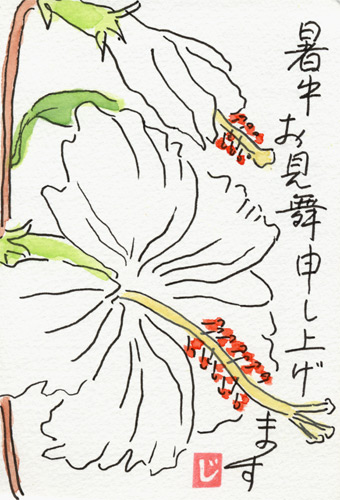 暑中お見舞申し上げ
ます
じ